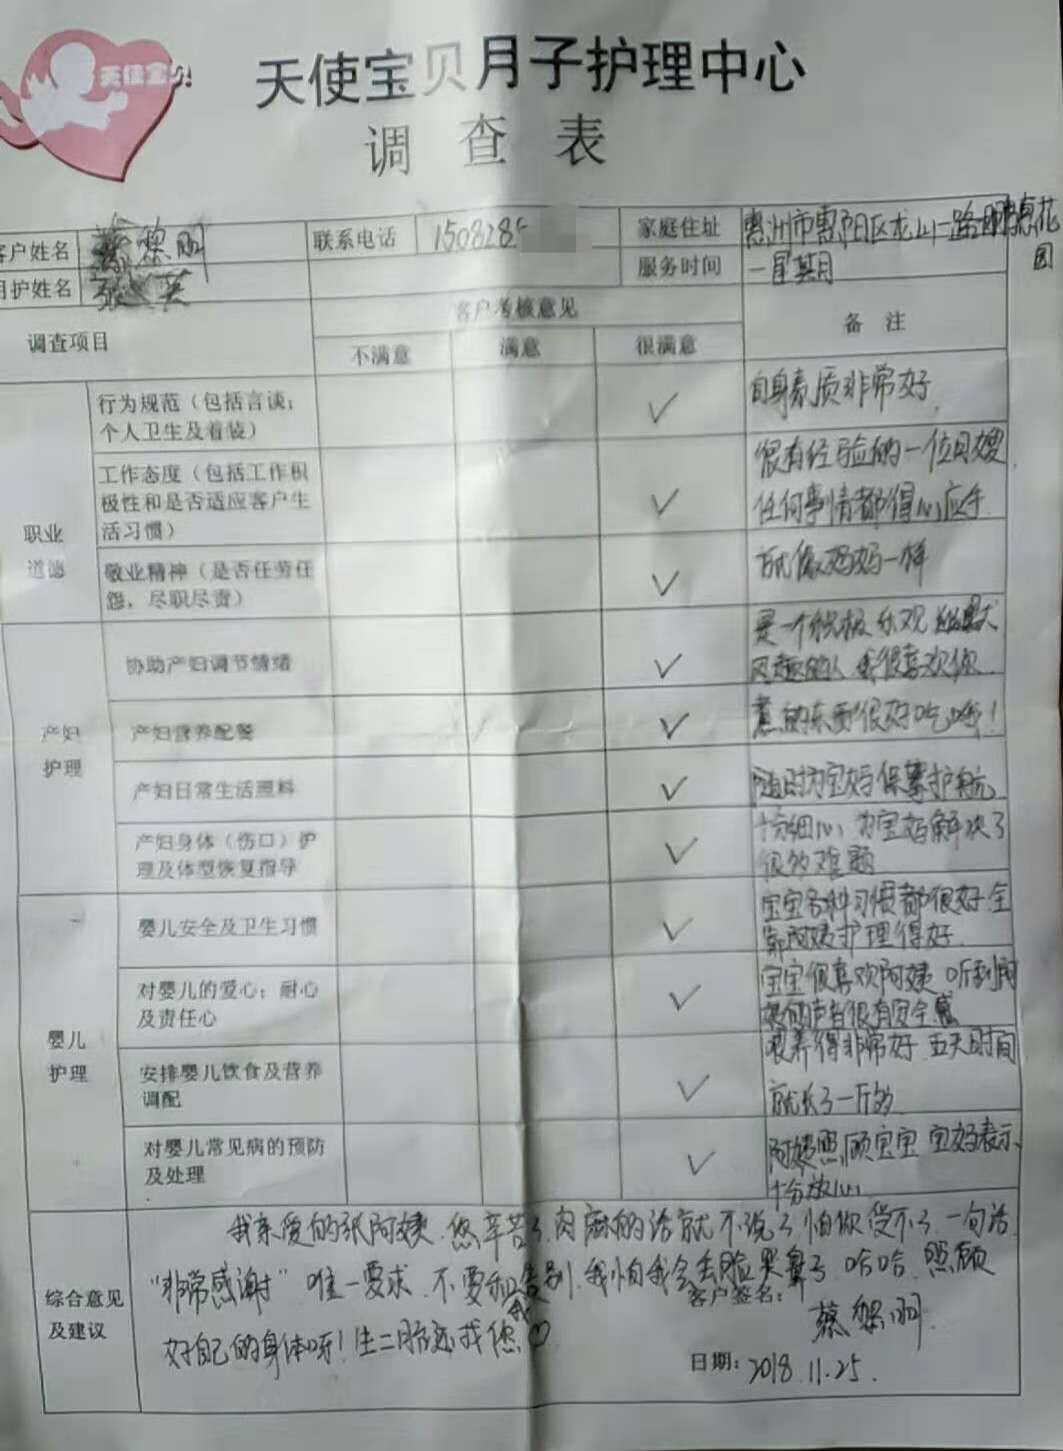 天使宝
天使宝贝月子护理中心
调查表
客户姓名
联系电话 150828
家庭住址 惠州市惠阳区龙山一路 花园
月护姓名 张 英
服务时间 一星期
调查项目 客户考核意见 备 注
不满意 满意 很满意
职业道德
行为规范（包括言谈；
个人卫生及着装） ✓ 自身素质非常好.
工作态度（包括工作积
极性和是否适应客户生
活习惯） ✓
很有经验的一位月嫂
任何事情都得心应手
敬业精神（是否任劳任
怨，尽职尽责） ✓ 就像妈妈一样
产妇护理
协助产妇调节情绪 ✓
是一个积极乐观 幽默
风趣的人 我很喜欢你
产妇营养配餐 ✓ 煮的东西很好吃哦！
产妇日常生活照料 ✓ 随时为宝妈保驾护航
产妇身体（伤口）护
理及体型恢复指导 ✓
十分细心 为宝妈解决了
很多难题
婴儿护理
婴儿安全及卫生习惯 ✓
宝宝各种习惯都很好 全
靠阿姨护理得好
对婴儿的爱心；耐心
及责任心 ✓
宝宝很喜欢阿姨 听到阿
姨的声音很有安全感
安排婴儿饮食及营养
调配 ✓
喂养得非常好 五天时间
就长了一斤多
对婴儿常见病的预防
及处理 ✓
阿姨照顾宝宝 宝妈表示
十分放心
综合意见
及建议
我亲爱的张阿姨.您辛苦了.肉麻的话就不说了 怕你受不了.一句话
“非常感谢” 唯一要求.不要和我告别.我怕我会去脸哭鼻子 哈哈.照顾
好自己的身体呀！生二胎还找您♡
客户签名：
蔡 明
日期：2018.11.25.